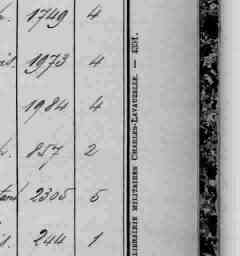 1749 4
is. 1973 4
1984 4
s. 857 2
2305 5
is. 244 1
LIBRAIRIE MILITAIRE CHARLES-LAVAUZELLE. —